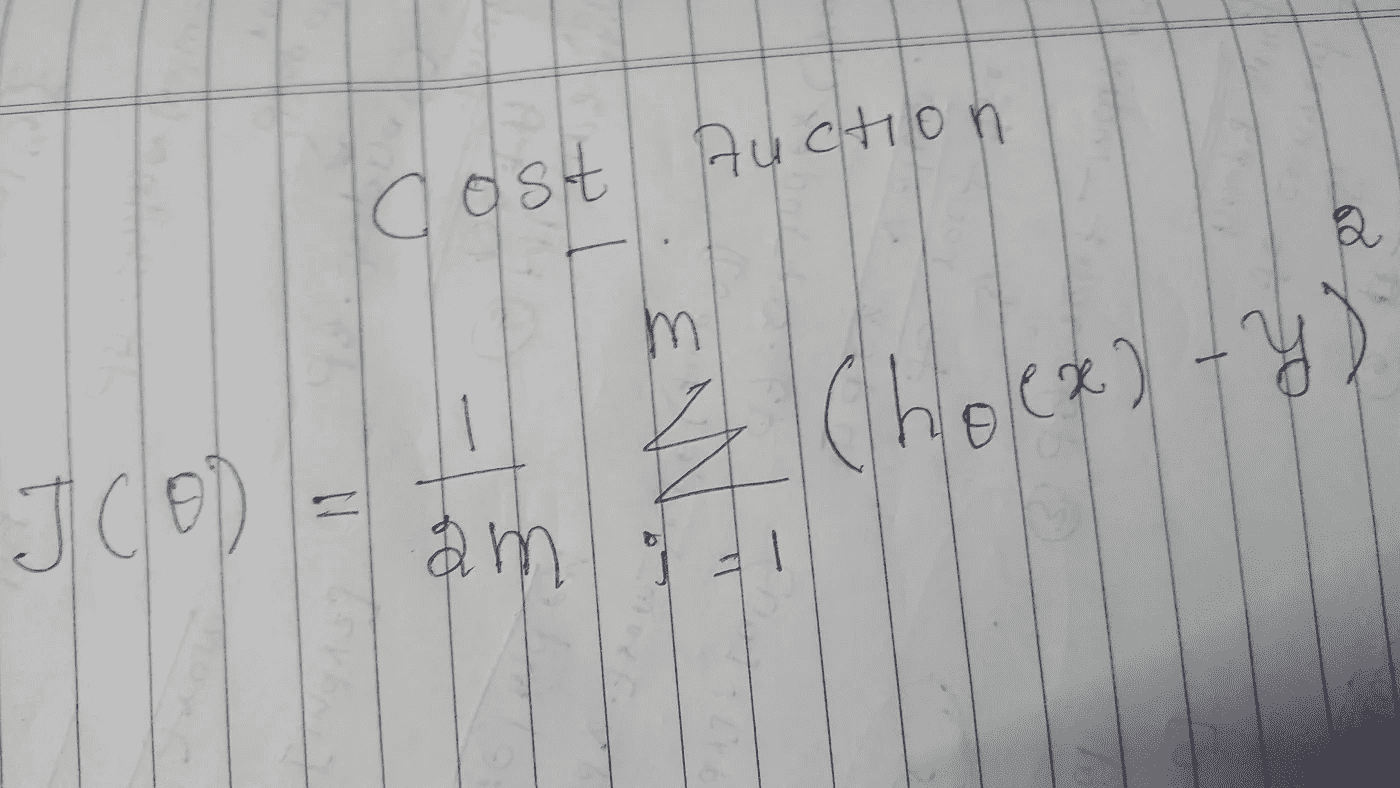 Cost Fuction
J(θ) = 1/2m m Σ i=1 (hθ(x) - y)²